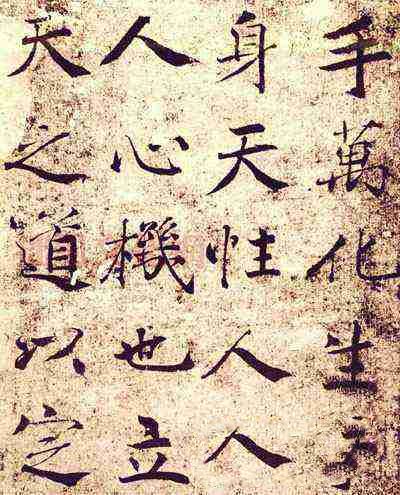 手萬化生乎
身天性人人
人心機也立
天之道以定